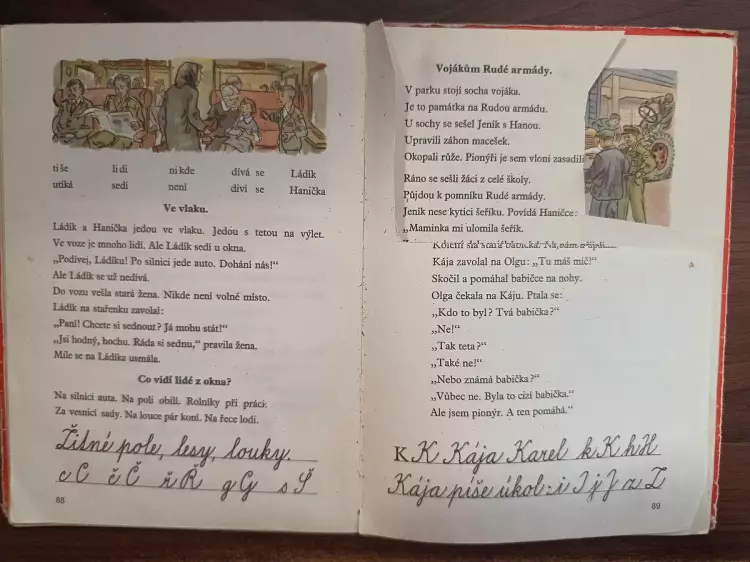 tiše lidi nikde dívá se Ládík
utíká sedí není diví se Hanička
Ve vlaku.
Ládík a Hanička jedou ve vlaku. Jedou s tetou na výlet.
Ve voze je mnoho lidí. Ale Ládík sedí u okna.
„Podívej, Ládíku! Po silnici jede auto. Dohání nás!“
Ale Ládík se už nedívá.
Do vozu vešla stará žena. Nikde není volné místo.
Ládík na stařenku zavolal:
„Paní! Chcete si sednout? Já mohu stát!“
„Jsi hodný, hochu. Ráda si sednu,“ pravila žena.
Mile se na Ládíka usmála.
Co vidí lidé z okna?
Na silnici auta. Na poli obilí. Rolníky při práci.
Za vesnicí sady. Na louce pár koní. Na řece lodi.
Žitné pole, lesy, louky.
c C č Č ř Ř g G s Š
88
Vojákům Rudé armády.
V parku stojí socha vojáka.
Je to památka na Rudou armádu.
U sochy se sešel Jeník s Hanou.
Upravili záhon macešek.
Okopali růže. Pionýři je sem vloni zasadili
Ráno se sešli žáci z celé školy.
Půjdou k pomníku Rudé armády.
Jeník nese kytici šeříku. Povídá Haničce:
„Maminka mi ulomila šeřík.
Kája zavolal na Olgu: „Tu máš míč!“
Skočil a pomáhal babičce na nohy.
Olga čekala na Káju. Ptala se:
„Kdo to byl? Tvá babička?“
„Ne!“
„Tak teta?“
„Také ne!“
„Nebo známá babička?“
„Vůbec ne. Byla to cizí babička.“
Ale jsem pionýr. A ten pomáhá.“
K K Kája Karel k K h H
Kája píše úkol: i I j J z Z
89